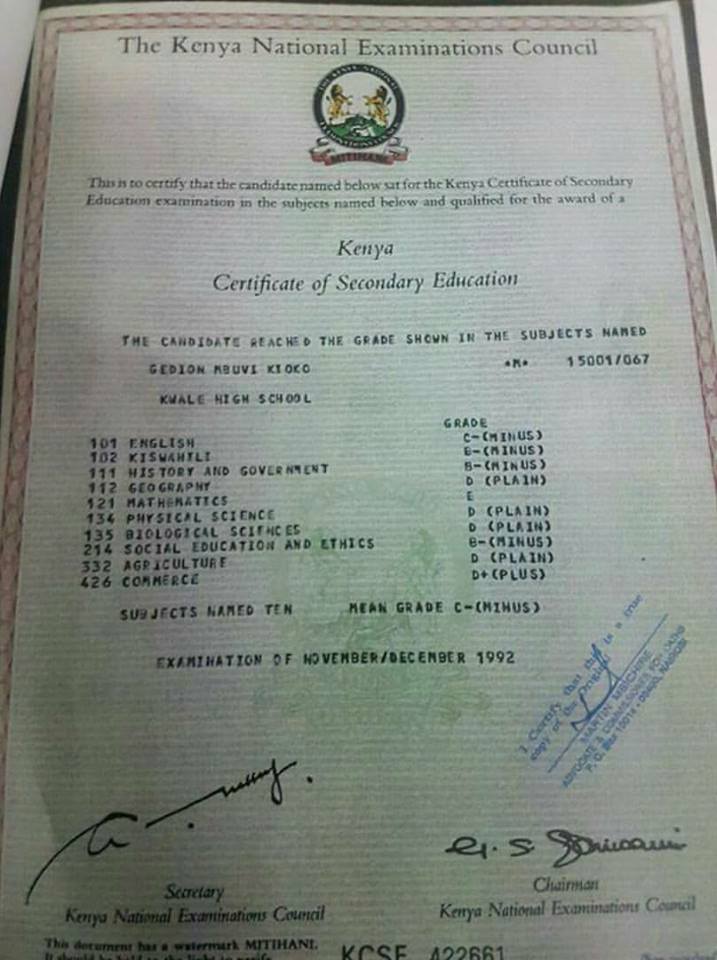 The Kenya National Examinations Council
MITIHANI
This is to certify that the candidate named below sat for the Kenya Certificate of Secondary
Education examination in the subjects named below and qualified for the award of a
Kenya
Certificate of Secondary Education
THE CANDIDATE REACHED THE GRADE SHOWN IN THE SUBJECTS NAMED
GEDION MBUVI KIOKO *M* 15001/067
KWALE HIGH SCHOOL
GRADE
101 ENGLISH C-(MINUS)
102 KISWAHILI B-(MINUS)
111 HISTORY AND GOVERNMENT B-(MINUS)
112 GEOGRAPHY D (PLAIN)
121 MATHEMATICS E
134 PHYSICAL SCIENCE D (PLAIN)
135 BIOLOGICAL SCIENCES D (PLAIN)
214 SOCIAL EDUCATION AND ETHICS B-(MINUS)
332 AGRICULTURE D (PLAIN)
426 COMMERCE D+(PLUS)
SUBJECTS NAMED TEN MEAN GRADE C-(MINUS)
EXAMINATION OF NOVEMBER/DECEMBER 1992
I Certify that this is a true
copy of the Original
MARTIN
ADVOCATE & COMMISSIONER FOR OATHS
P. O. Box NAIROBI
Secretary
Kenya National Examinations Council
Chairman
Kenya National Examinations Council
This document has a watermark MITIHANI.
It should be held to the light to verify
KCSE 422661